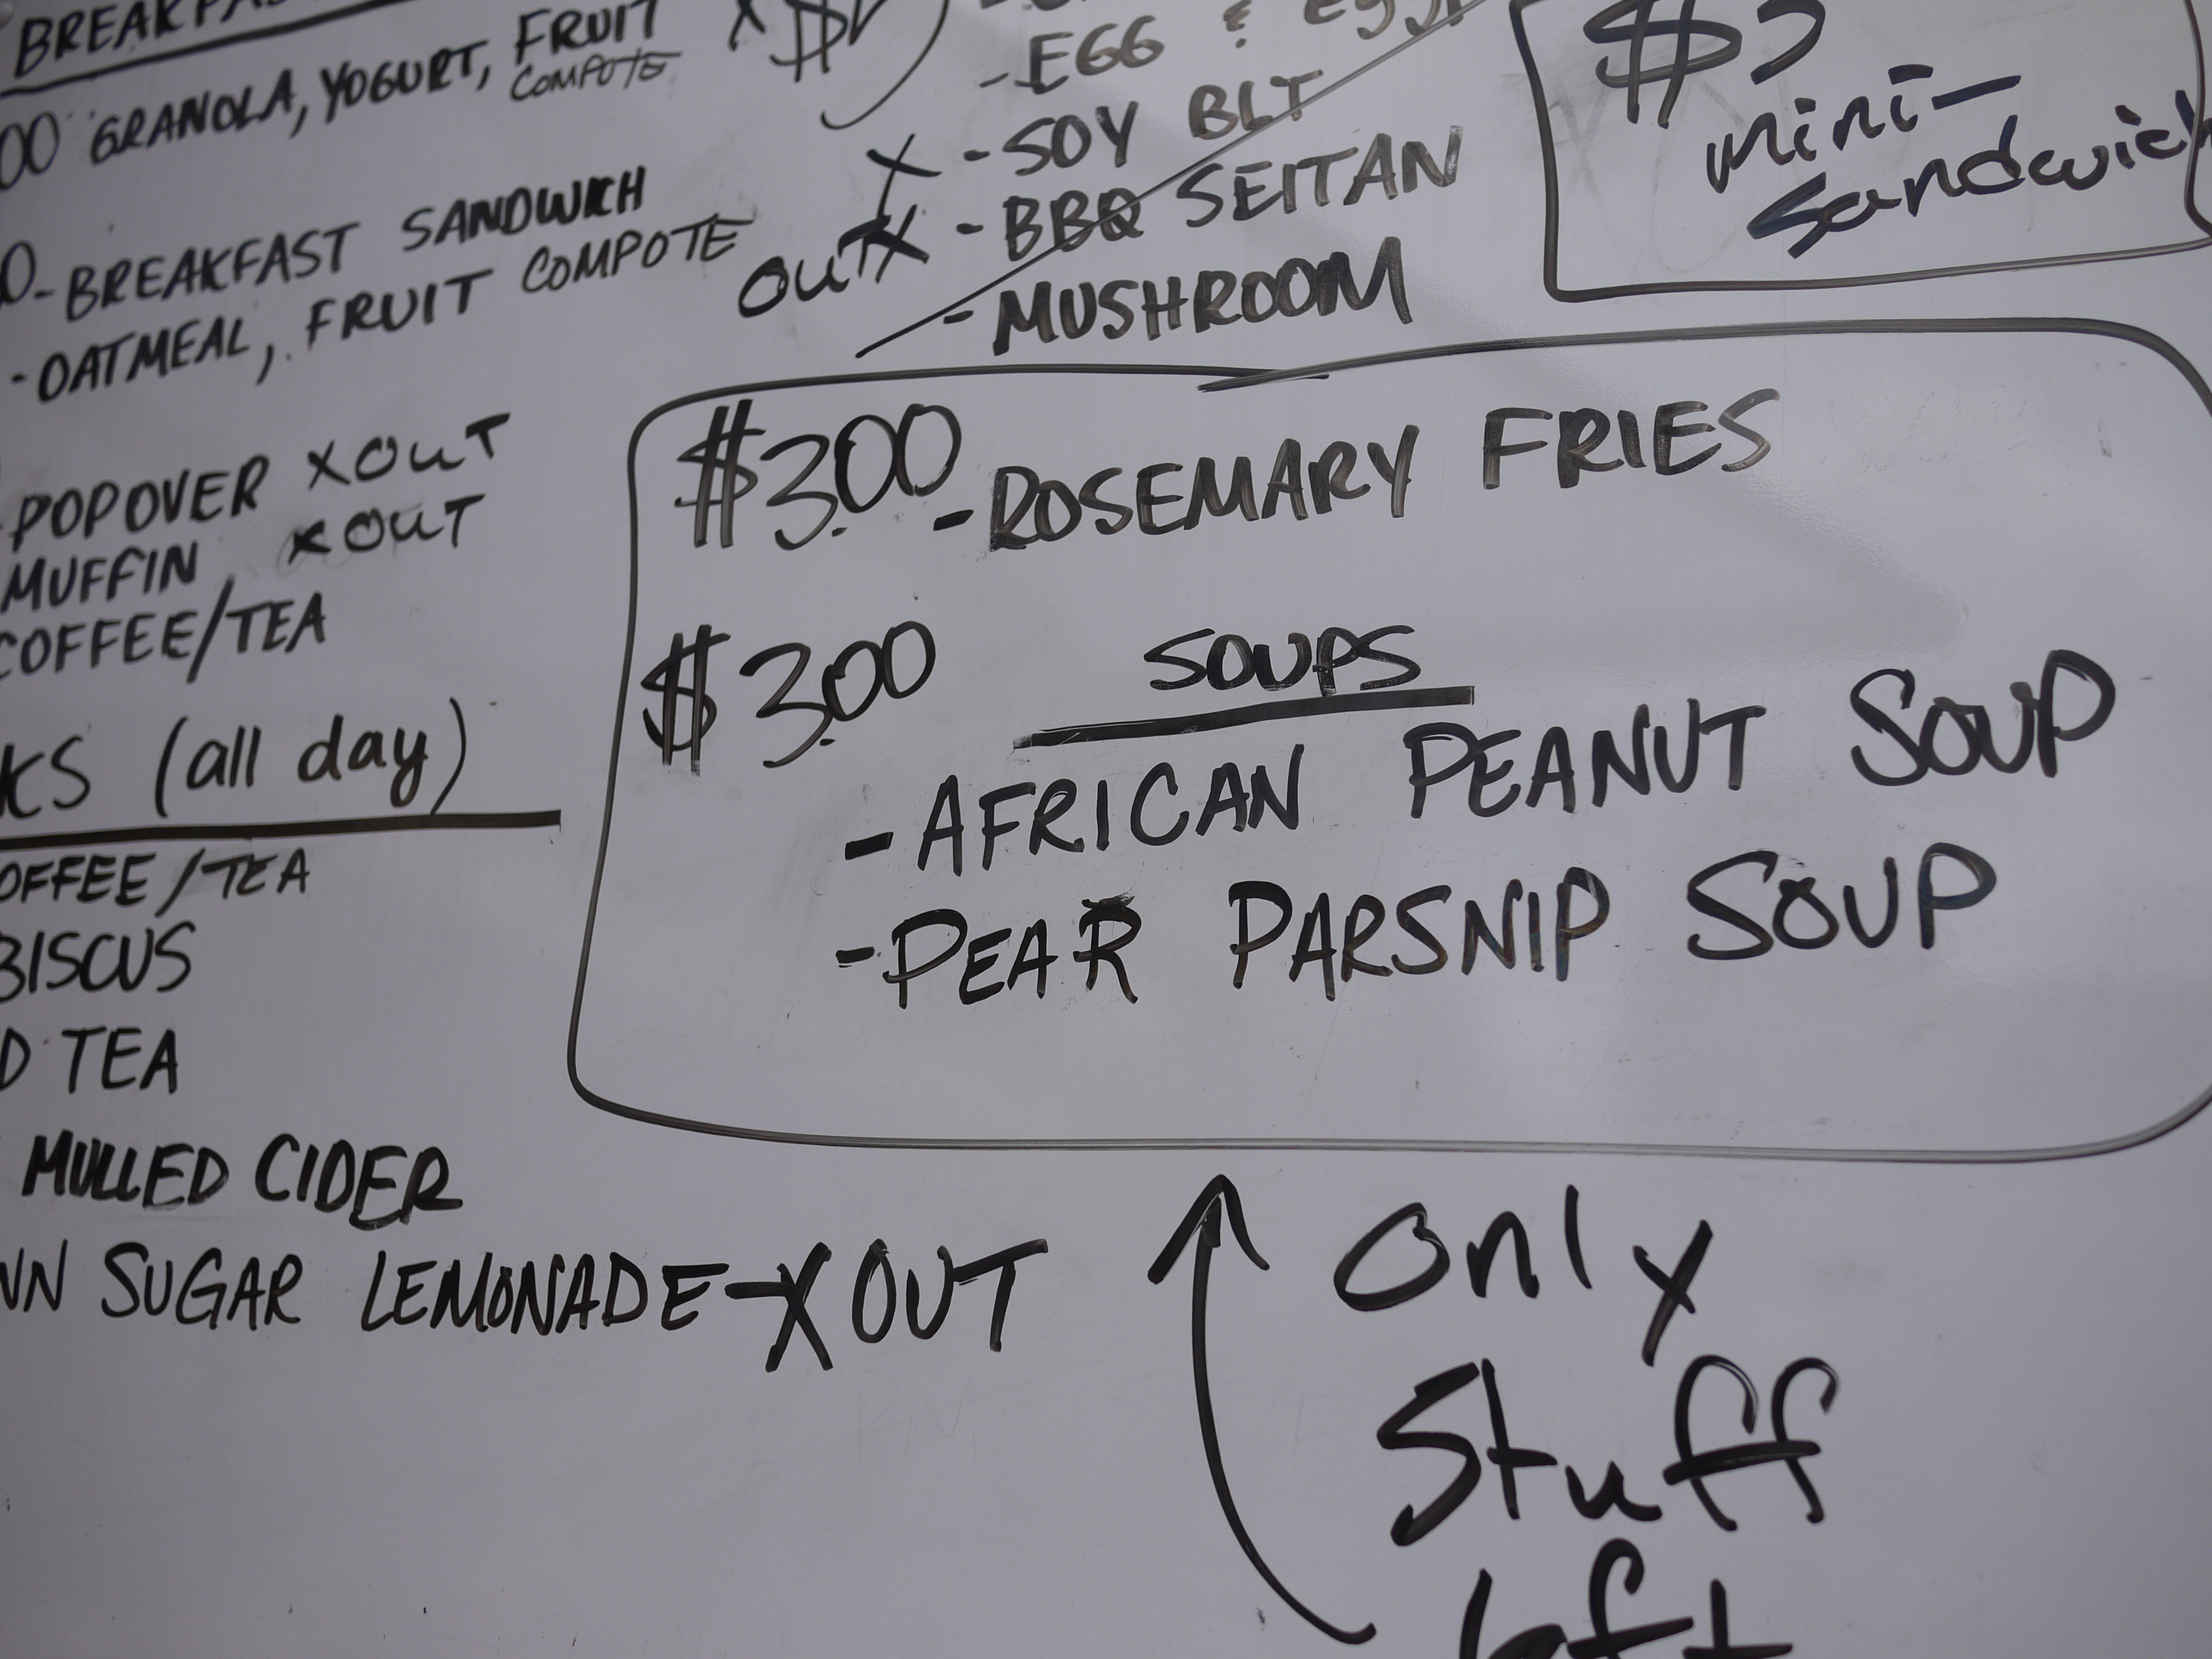 GRANOLA, YOGURT, FRUIT
COMPOTE
BREAKFAST SANDWICH
-OATMEAL, FRUIT COMPOTE
POPOVER X OUT
MUFFIN X OUT
COFFEE/TEA
(all day)
OFFEE/TEA
BISCUS
D TEA
MULLED CIDER
SUGAR LEMONADE-X OUT
-EGG &
X -SOY BLT
OUT X -BBQ SEITAN
-MUSHROOM
mini-
Sandwich
$3.00 -ROSEMARY FRIES
$3.00 SOUPS
-AFRICAN PEANUT SOUP
-PEAR PARSNIP SOUP
only
Stuff
left